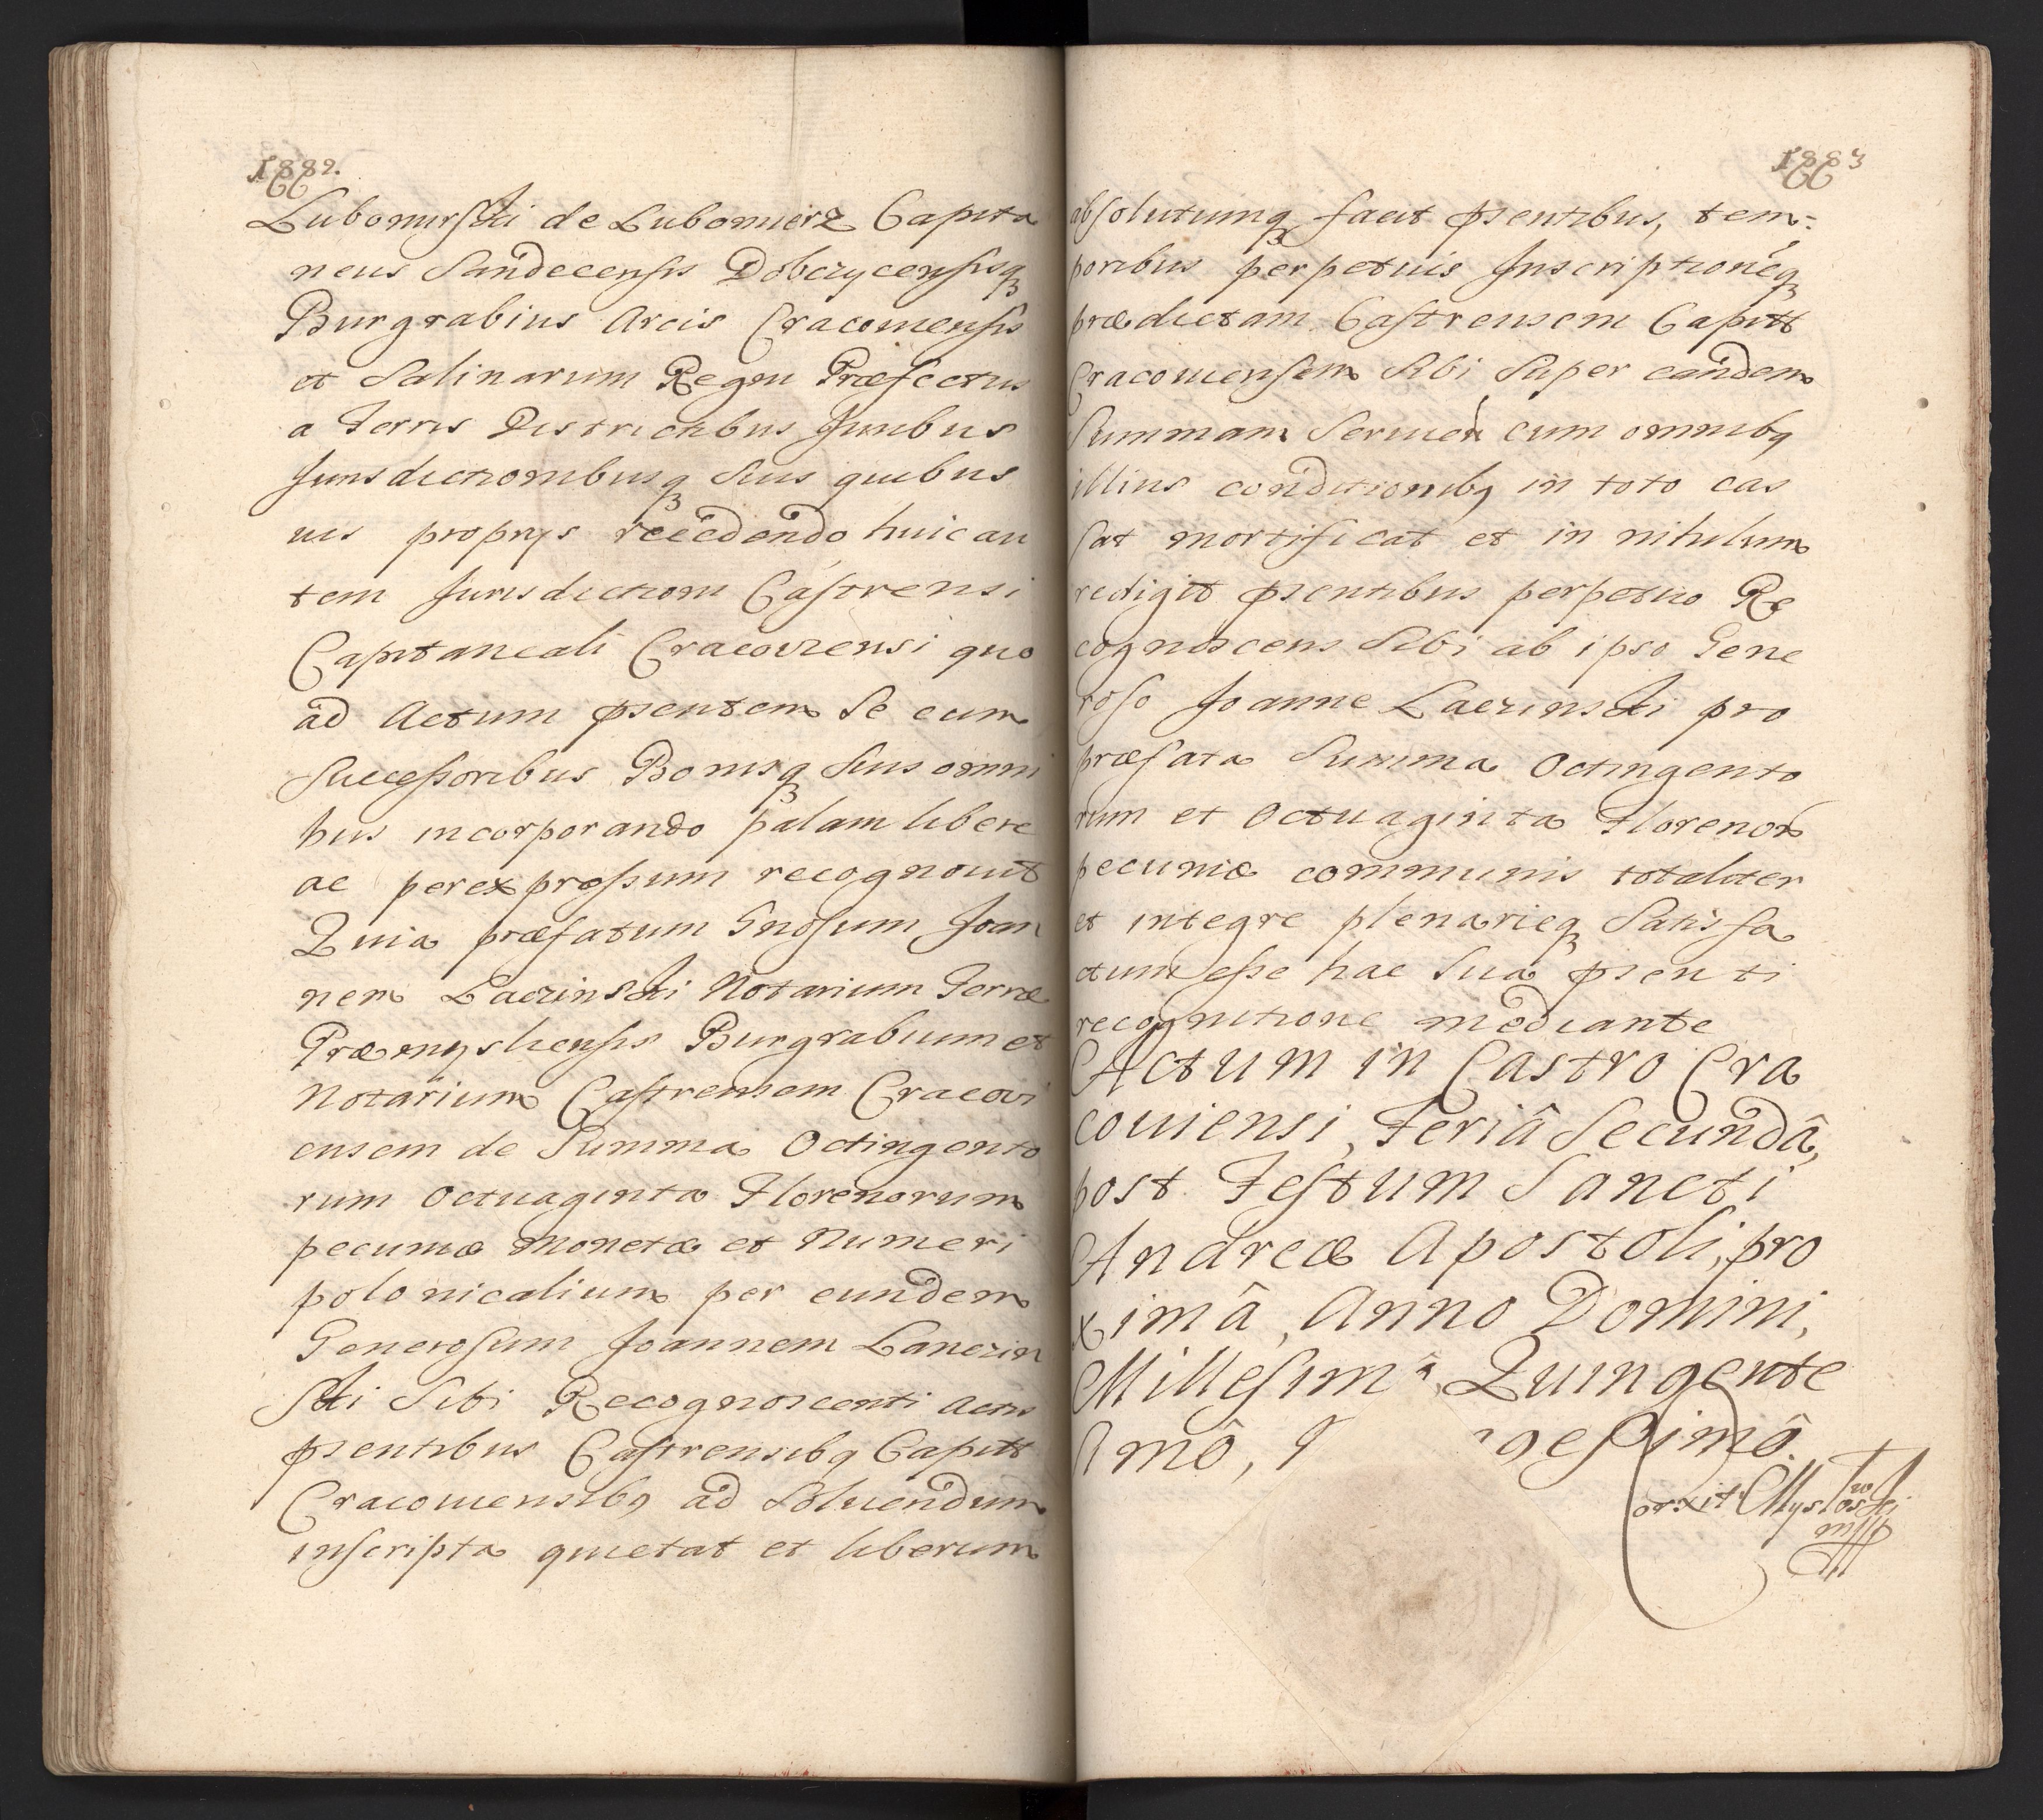 1882.
Lubomirski de Lubomierz Capita
neus Sandecensis Dobczycensisq
Burgrabius Arcis Cracoviensis
et Salinarum Regni Præfectus
a Terris Districtibus Juribus
Jurisdictionibusq suis quibus
vis proprys recedendo huic au
tem Jurisdictioni Castrensi
Capitaneali Cracoviensi quo
ad Actum pñsentem se cum
Successoribus Bonisq suis omni
bus incorporando palam libere
ac per expressum recognouit
Quia præfatum Gnosum Joan
nem Laczinski Notarium Terræ
Præmysliensis Burgrabium et
Notarium Castrensem Cracovi
ensem de Summa Octingento
rum Octuaginta Florenorum
pecuniæ Monetæ et Numeri
polonicalium per eundem
Generosum Joannem Lanczin
ski sibi Recognoscenti Actis
psentibus Castrensibq Capitt
Cracouiensibq ad Soluendum
inscripta quietat et liberum
1883
absolutumq facit psentibus, tem=
poribus perpetuis Inscriptionéq
prædictam Castrensem Capitt
Cracouiensem Sibi Super eandem
Summam Seruień cum omnibq
illius conditionibq in toto cas
sat mortificat et in nihilum
redigit psentibus perpetuo Re
cognoscens Sibi ab ipso Gene
roso Joanne Laczinski pro
præfata Summa Octingento
rum et Octuaginta Florenor
pecuniæ communis totaliter
et integre plenarieq Satisfa
ctum esse hac Sua psenti
recognitione mediante
Actum in Castro Cra
couiensi, Feriâ Secundâ,
post Festum Sancti
Andreæ Apostoli, pro
ximâ, Anno Domini,
Millesimô, Quingente
simô, gesimô.